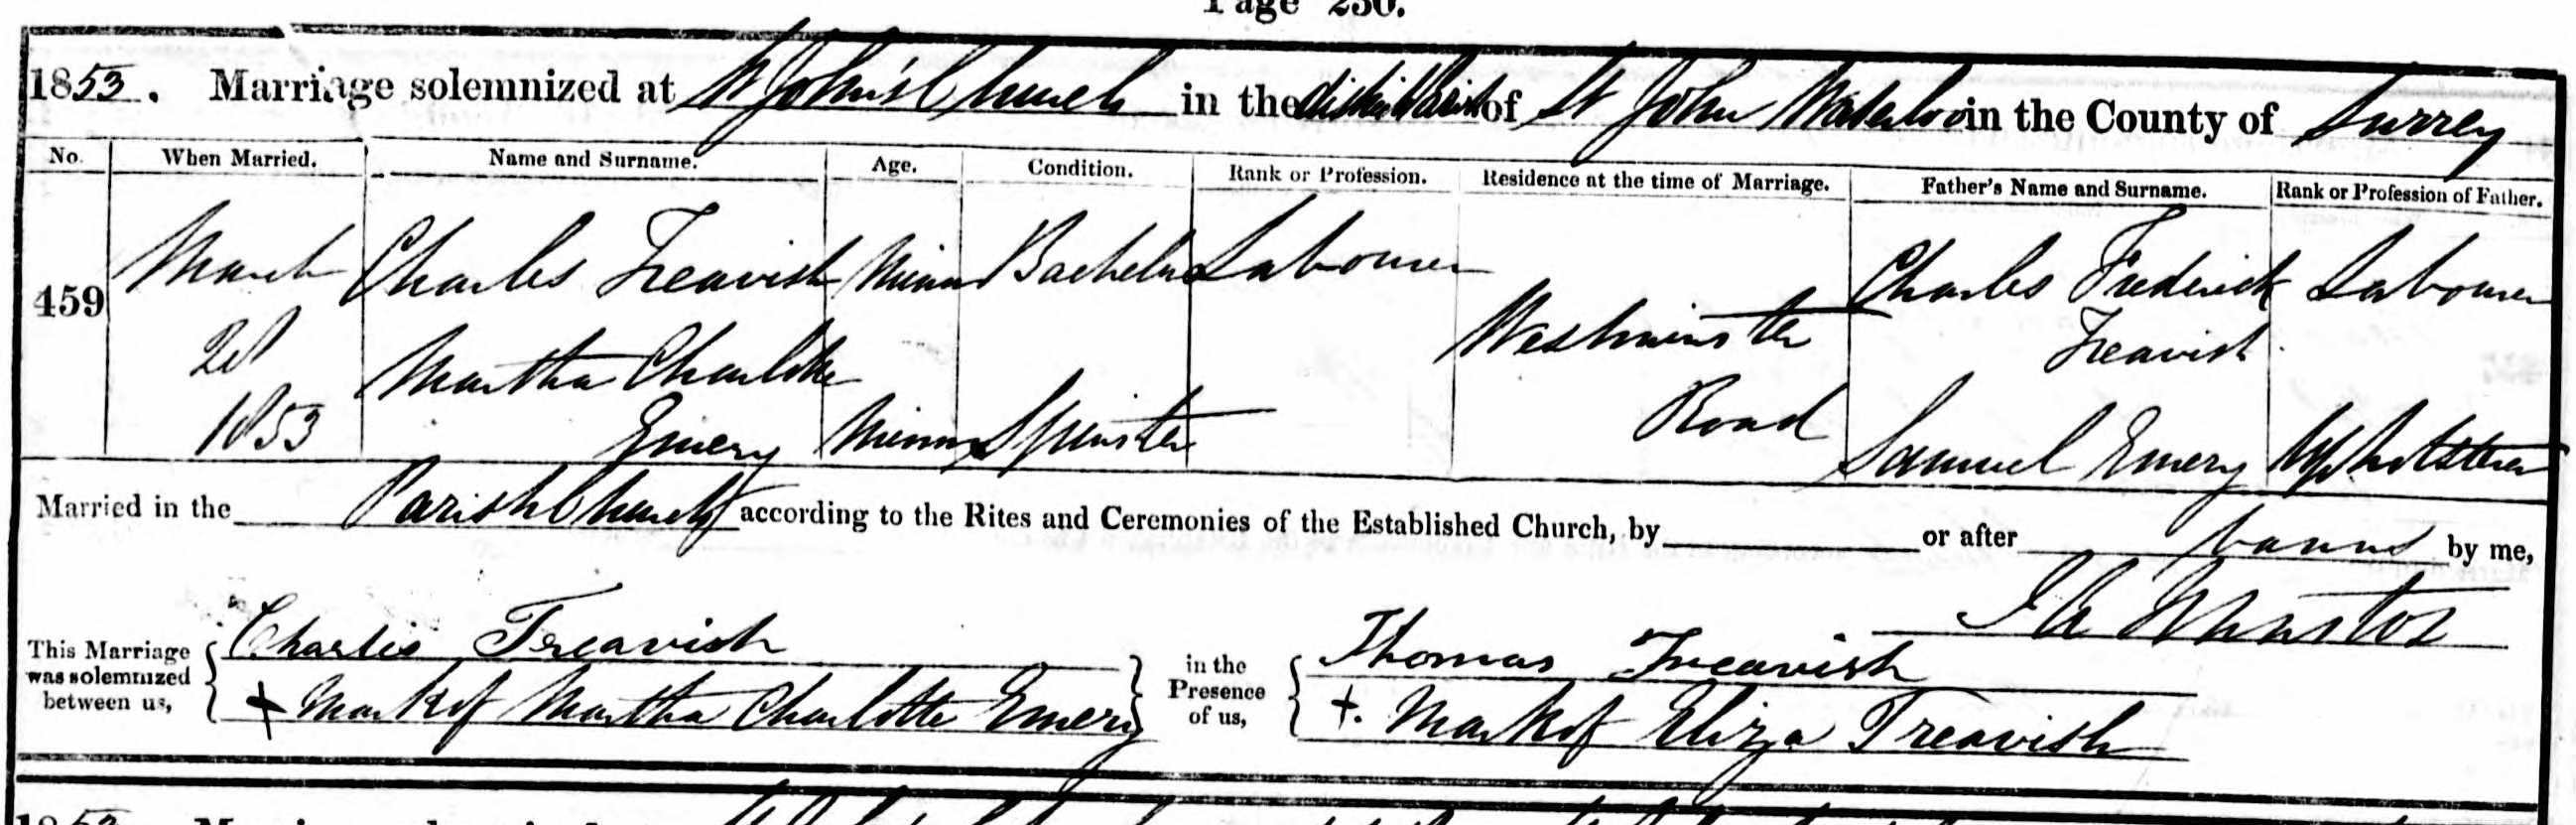 Page 230.
1853. Marriage solemnized at St John's Church in the district Parish of St John Waterloo in the County of Surrey
No. When Married. Name and Surname. Age. Condition. Rank or Profession. Residence at the time of Marriage. Father's Name and Surname. Rank or Profession of Father.
459 March Charles Treavish Minor Bachelor Labourer Charles Frederick Labourer
Westminster Treavish
Martha Charlotte
1853 Emery Minor Spinster Road Samuel Emery Upholsterer
Married in the Parish Church according to the Rites and Ceremonies of the Established Church, by or after banns by me,
This Marriage was solemnized between us, Charles Treavish in the Presence of us, Thomas Treavish
+ Mark of Martha Charlotte Emery +. Mark of Eliza Treavish